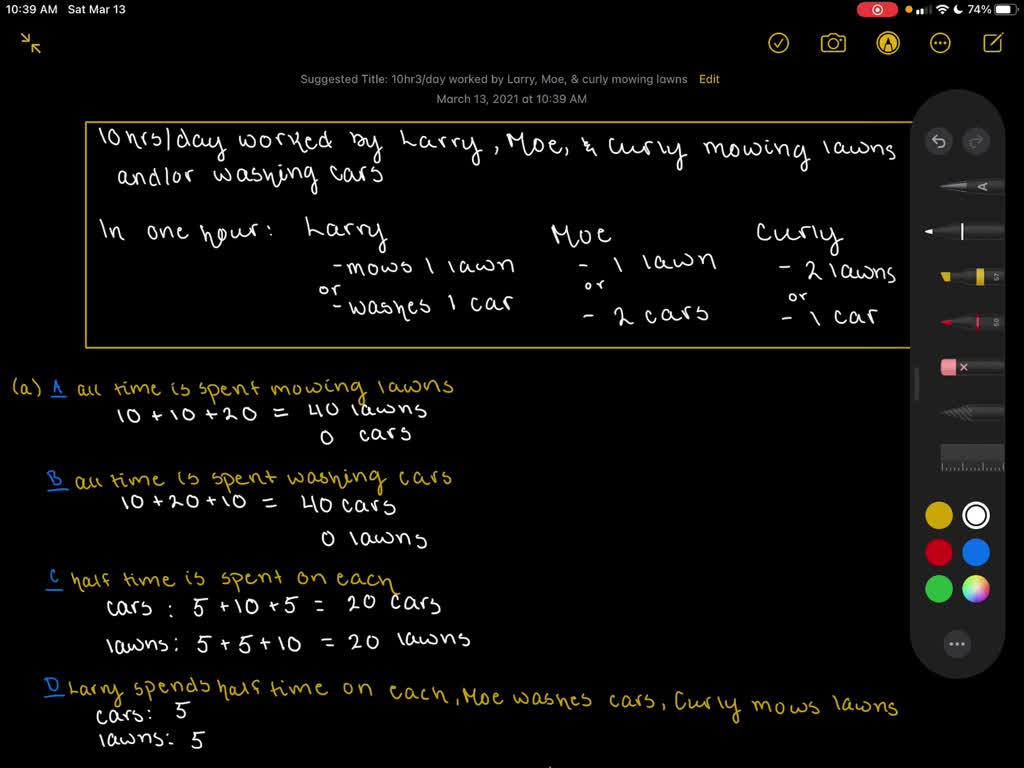 10:39 AM Sat Mar 13 74%
Suggested Title: 10hr3/day worked by Larry, Moe, & curly mowing lawns Edit
March 13, 2021 at 10:39 AM
10hrs/day worked by Larry, Moe, & Curly mowing lawns
and/or washing cars
In one hour: Larry Moe Curly
- mows 1 lawn - 1 lawn - 2 lawns
or or or
- washes 1 car - 2 cars - 1 car
(a) A all time is spent mowing lawns
10 + 10 + 20 = 40 lawns
0 cars
B all time is spent washing cars
10 + 20 + 10 = 40 cars
0 lawns
C half time is spent on each
cars: 5 + 10 + 5 = 20 cars
lawns: 5 + 5 + 10 = 20 lawns
D Larry spends half time on each, Moe washes cars, Curly mows lawns
cars: 5
lawns: 5